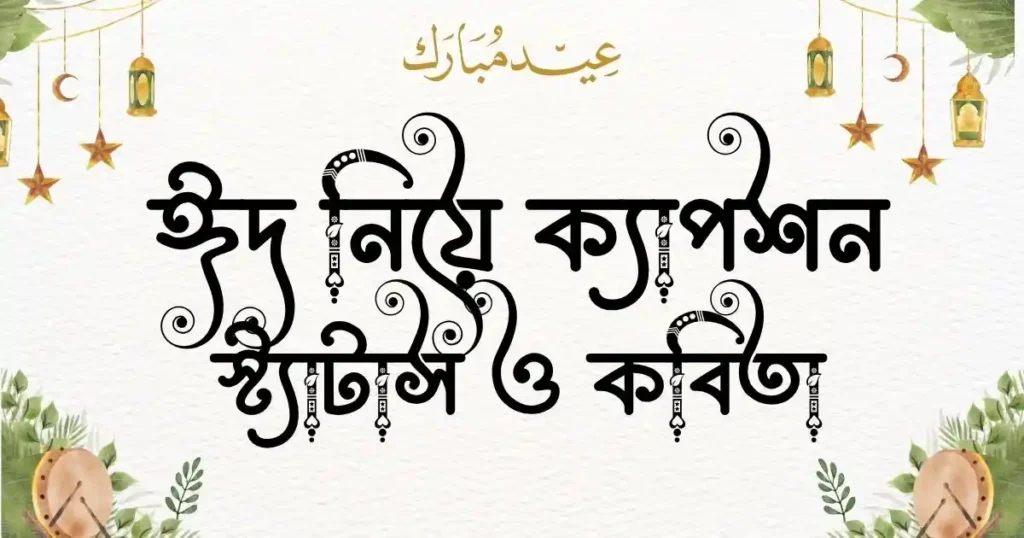 عِيـّـدمُبَارَك
ঈদ নিয়ে ক্যাপশন
স্ট্যাটাস ও কবিতা